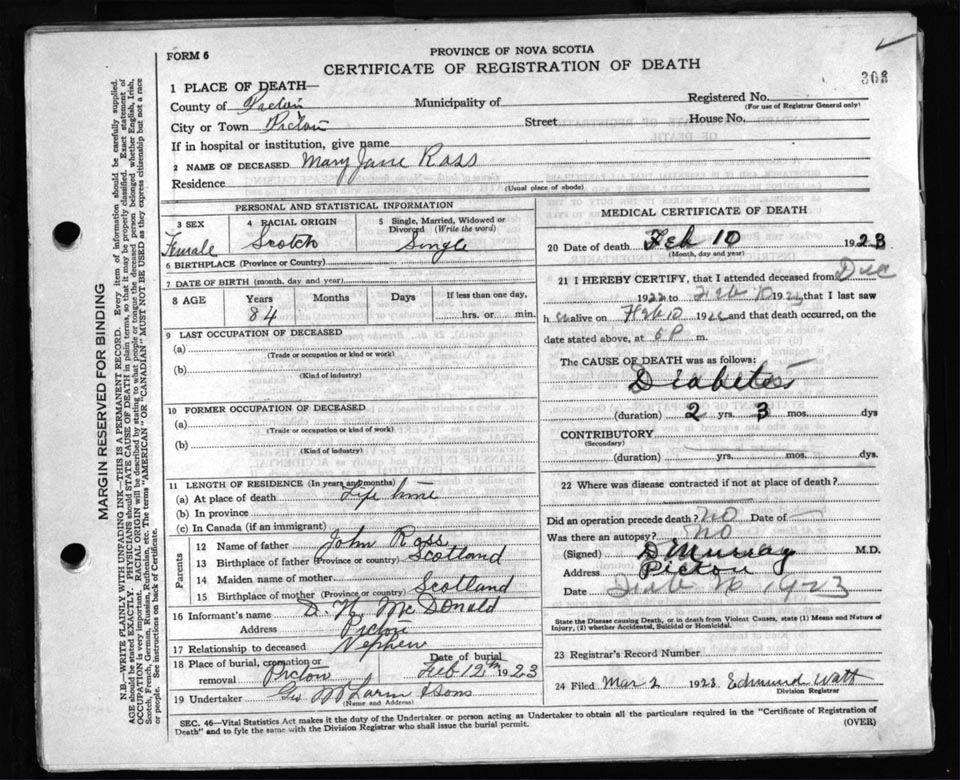 FORM 6
PROVINCE OF NOVA SCOTIA
CERTIFICATE OF REGISTRATION OF DEATH
308
1 PLACE OF DEATH—
County of Pictou Municipality of Registered No.
(For use of Registrar General only)
City or Town Pictou Street House No.
If in hospital or institution, give name
2 NAME OF DECEASED Mary Jane Ross
Residence
(Usual place of abode)
PERSONAL AND STATISTICAL INFORMATION
3 SEX 4 RACIAL ORIGIN 5 Single, Married, Widowed or Divorced (Write the word)
Female Scotch Single
6 BIRTHPLACE (Province or Country)
7 DATE OF BIRTH (month, day and year)
8 AGE Years Months Days If less than one day,
84 hrs. or min.
9 LAST OCCUPATION OF DECEASED
(a)
(Trade or occupation or kind or work)
(b)
(Kind of industry)
10 FORMER OCCUPATION OF DECEASED
(a)
(Trade or occupation or kind of work)
(b)
(Kind of industry)
11 LENGTH OF RESIDENCE (In years and months)
(a) At place of death Life time
(b) In province
(c) In Canada (if an immigrant)
Parents
12 Name of father John Ross
13 Birthplace of father (Province or country) Scotland
14 Maiden name of mother
15 Birthplace of mother (Province or country) Scotland
16 Informant's name McDonald
Address Pictou
17 Relationship to deceased Nephew
18 Place of burial, cremation or removal Pictou Date of burial Feb 12th 1923
19 Undertaker Geo & Sons
(Name and Address)
MEDICAL CERTIFICATE OF DEATH
20 Date of death Feb 10 1923
(Month, day and year)
21 I HEREBY CERTIFY, that I attended deceased from Dec
1922 to Feb 10 192 that I last saw
h er alive on Feb 10 192 and that death occurred, on
date stated above, at 6 P m.
The CAUSE OF DEATH was as follows:
Diabetes
(duration) 2 yrs. 3 mos. dys
CONTRIBUTORY
(Secondary)
(duration) yrs. mos. dys.
22 Where was disease contracted if not at place of death?
Did an operation precede death? NO Date of —
Was there an autopsy? NO
(Signed) D Murray M.D.
Address Pictou
Date 1923
State the Disease causing Death, or in death from Violent Causes, state (1) Means and Nature of
Injury, (2) whether Accidental, Suicidal or Homicidal.
23 Registrar's Record Number
24 Filed Mar 2 1923 Edmund Watt
Division Registrar
SEC. 46—Vital Statistics Act makes it the duty of the Undertaker or person acting as Undertaker to obtain all the particulars required in the "Certificate of Registration of
Death" and to fyle the same with the Division Registrar who shall issue the burial permit.
(OVER)
MARGIN RESERVED FOR BINDING
N.B.—WRITE PLAINLY WITH UNFADING INK—THIS IS A PERMANENT RECORD. Every item of information should be carefully supplied.
AGE should be stated EXACTLY. PHYSICIANS should STATE CAUSE OF DEATH in plain terms, so that it may be properly classified. Exact statement of
OCCUPATION is very important. RACIAL ORIGIN will be described by stating to what people or tongue the deceased person belonged whether English, Irish,
Scotch, French, German, Russian, Ruthenian, etc. The terms "AMERICAN" OR "CANADIAN" MUST NOT BE USED as they express citizenship but not a race
or people. See instructions on back of Certificate.